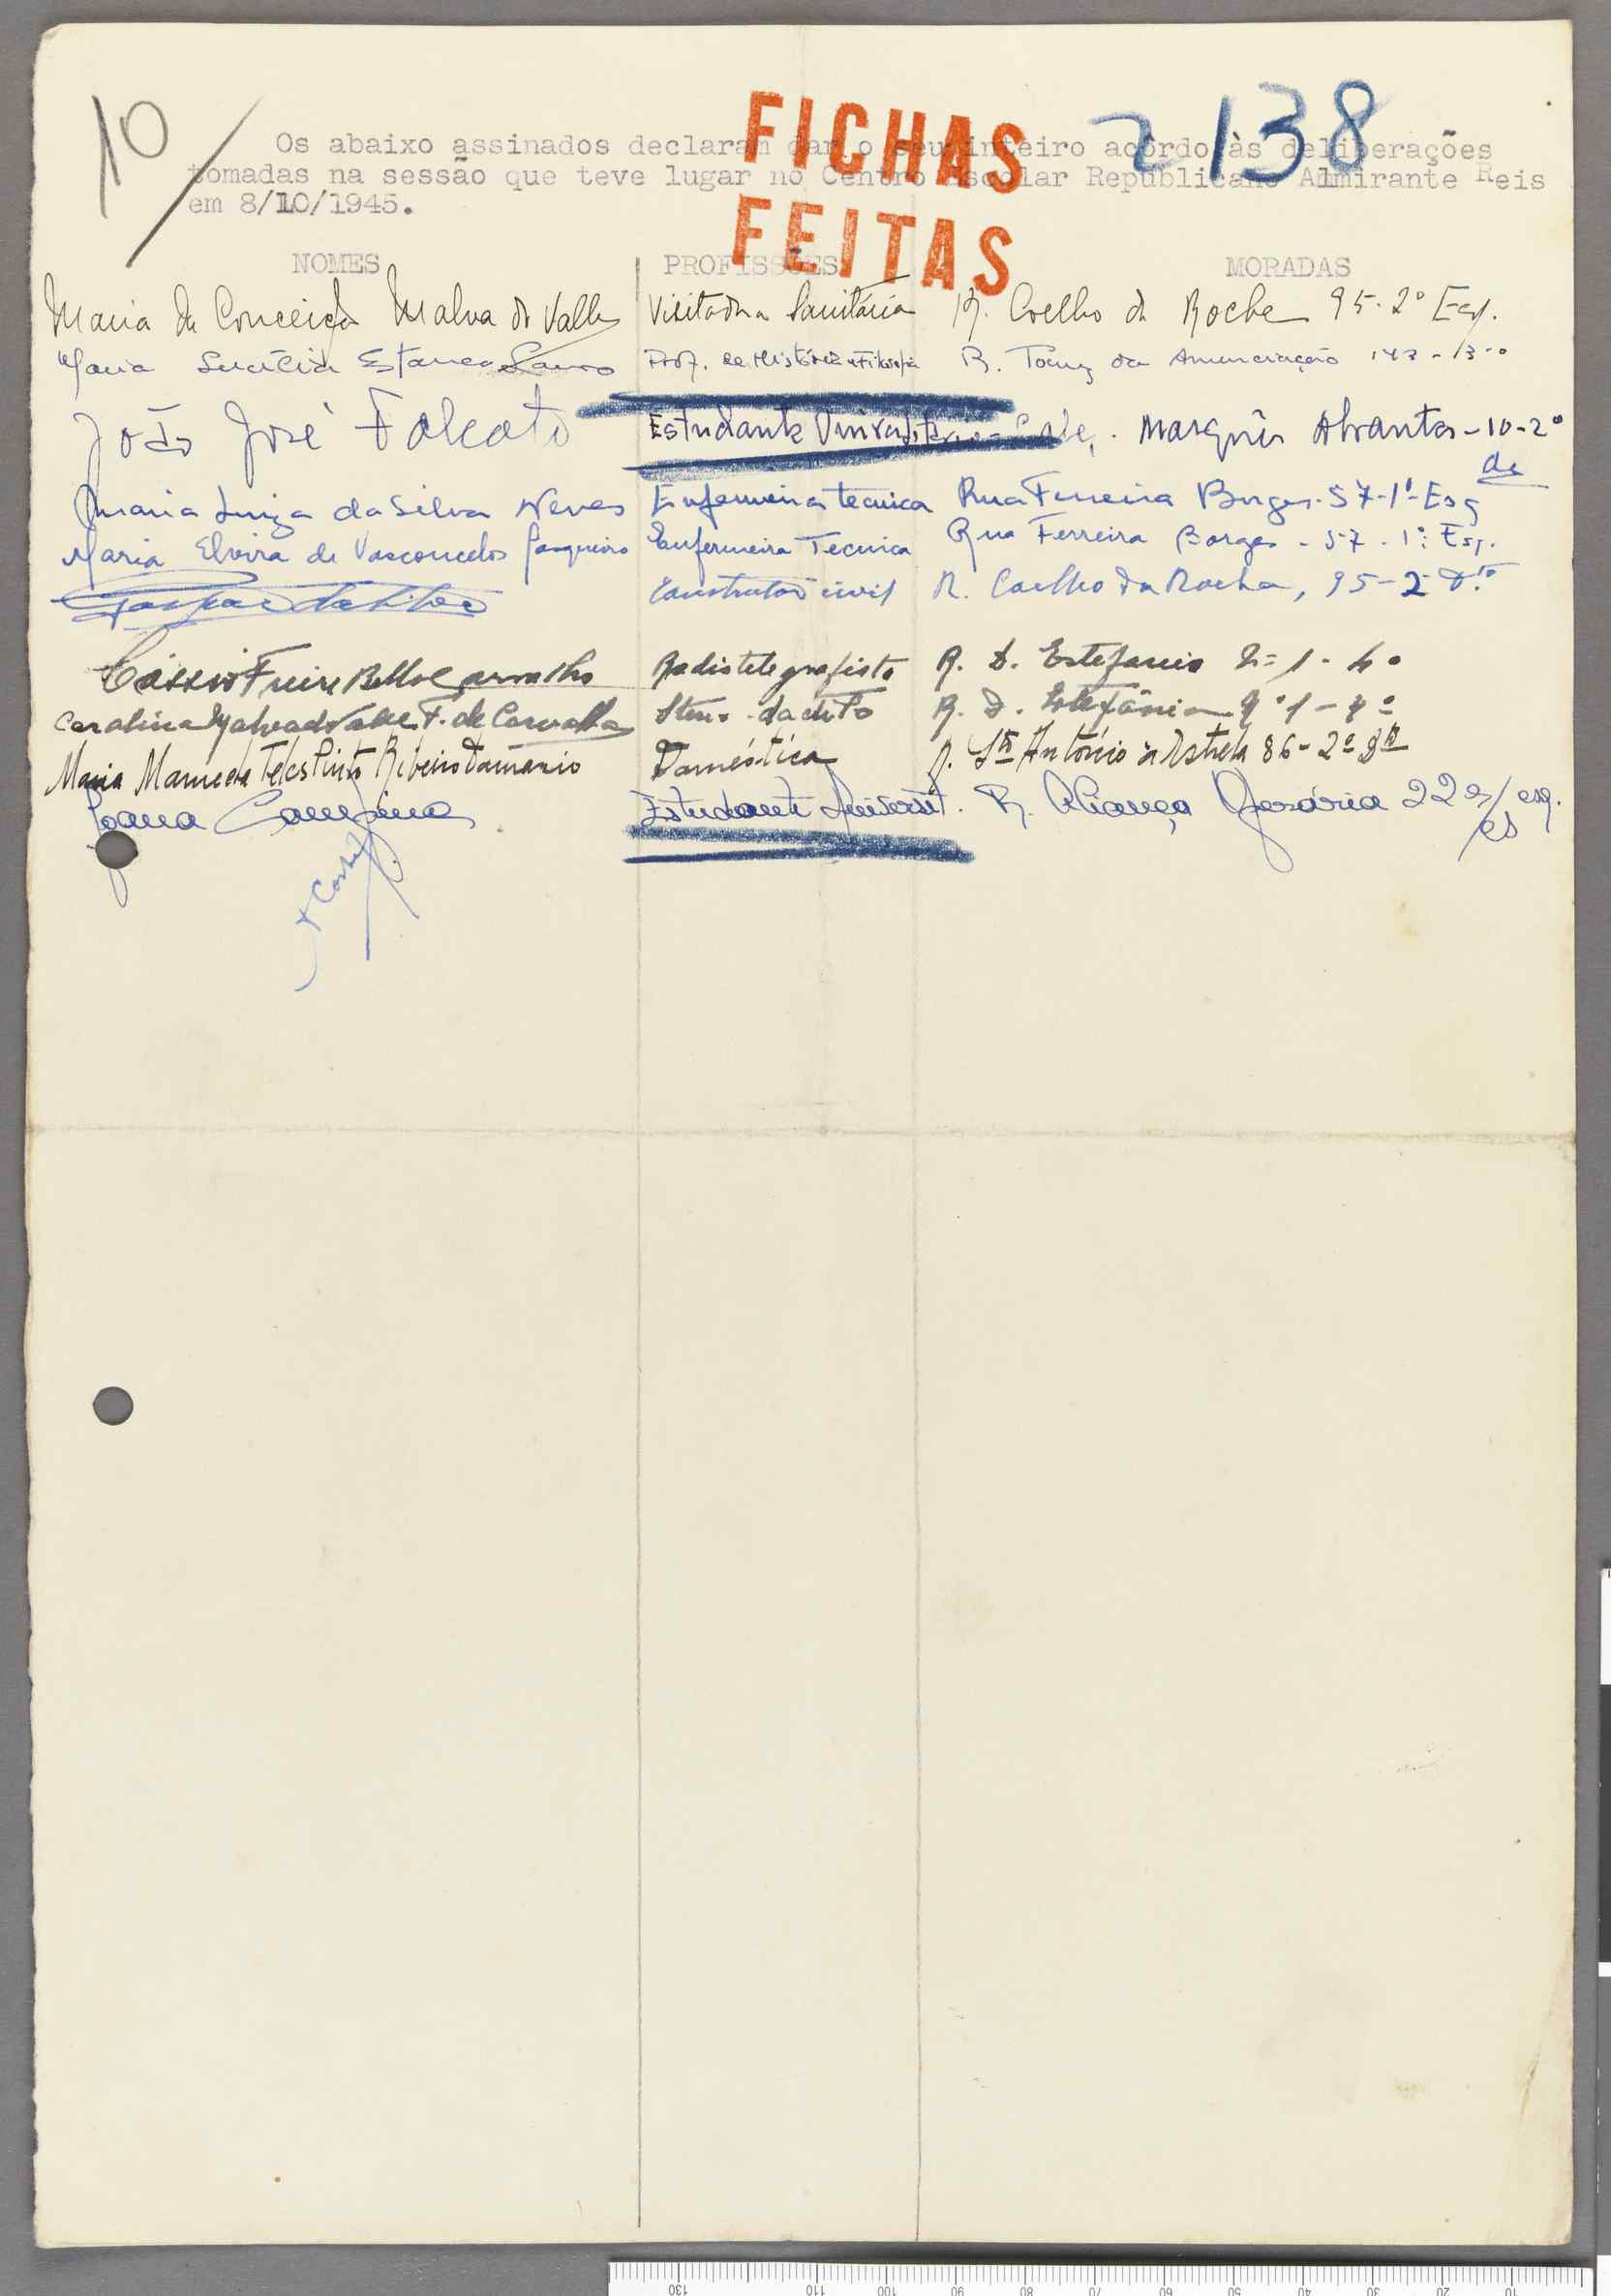 10
FICHAS
FEITAS
138
Os abaixo assinados declaram dar o seu inteiro acôrdo às deliberações
tomadas na sessão que teve lugar no Centro Escolar Republicano Almirante Reis
em 8/10/1945.
NOMES PROFISSÕES MORADAS
Maria da Conceição Malva do Valle Visitadora Sanitária R. Coelho da Rocha 95-2º Esq.
Maria Lucília Estanco Louro Prof. de História e Filosofia R. Tomaz da Anunciação 143-
João José Falcato Estudante Universitário Marquês Abrantes-10-2º
de
Maria Luiza da Silva Neves Enfermeira tecnica Rua Ferreira Borges-57-1º-Esq
Maria Elvira de Vasconcelos Enfermeira Tecnica Rua Ferreira Borges-57-1º Esq.
Construtor civil R. Coelho da Rocha, 95-2º Dto
Cássio Freire Bello e Carvalho Radiotelegrafista R. D. Estefania Nº 1-4º
Carolina Malva do Valle F. de Carvalho Steno-dactilo R. D. Estefânia Nº 1-4º
Maria Mamede Teles Pinto Ribeiro Damásio Doméstica R. Stº António à Estrela 86-2º Dtº
Joana Campina Estudante Universit. R. Aliança Operária 22 esq.